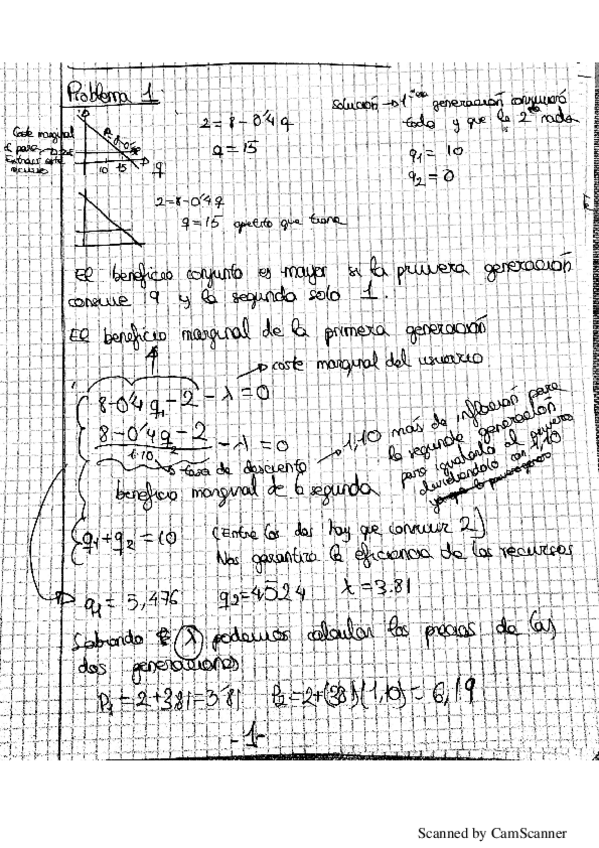 Problema 1
Coste marginal
para
Extraer este
recurso
P=8-0'4q
10 15
q
2=8-0'4q
q=15
Solución → 1ª generación consumirá
todo y que la 2ª nada
q1= 10
q2= 0
2=8-0'4q
q=15 que tiene
El beneficio conjunto es mayor si la primera generación
consume 9 y la segunda solo 1.
El beneficio marginal de la primera generación
coste marginal del usuario
8-0'4q1-2 -λ=0
8-0'4q2-2 -λ=0
1'10
tasa de descuento
1,10 más de inflación para
la segunda generación
para igualarla al
dividiendolo con 1,10
beneficio marginal de la segunda
q1+q2=10 (Entre las dos hay que consumir 2)
Nos garantiza la eficiencia de los recursos
q1= 5,476 q2=4524 λ=3.81
Sabiendo λ podemos calcular los precios de las
dos generaciones
P1=2+3,81=3'81 P2=2+(3,81)(1,10)=6,19
-1-
Scanned by CamScanner